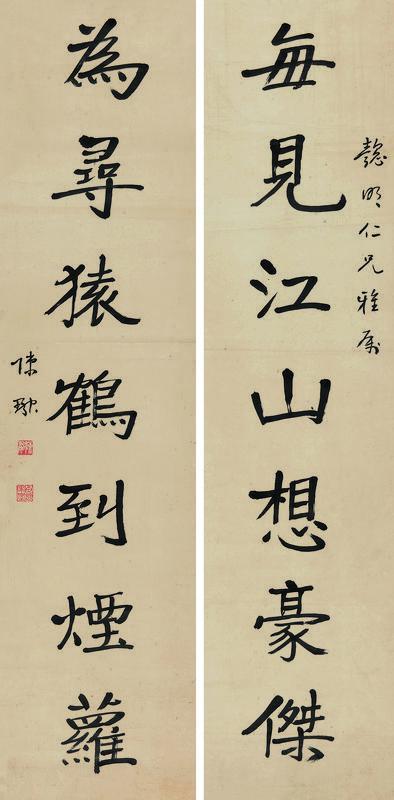 每見江山想豪傑
懿明仁兄雅屬
為尋猿鶴到煙蘿
陳